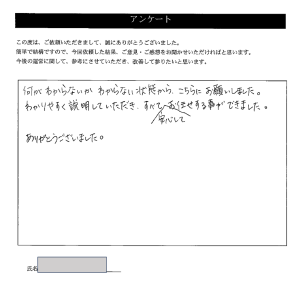 アンケート
この度は、ご依頼いただきまして、誠にありがとうございました。
簡単で結構ですので、今回依頼した結果、ご意見・ご感想をお聞かせいただければと思います。
今後の運営に関して、参考にさせていただき、改善して参りたいと思います。
何がわからないか わからない状態から、こちらにお願いしました。
わかりやすく説明していただき、すべてお任せする事ができました。
安心して
ありがとうございました。
氏名